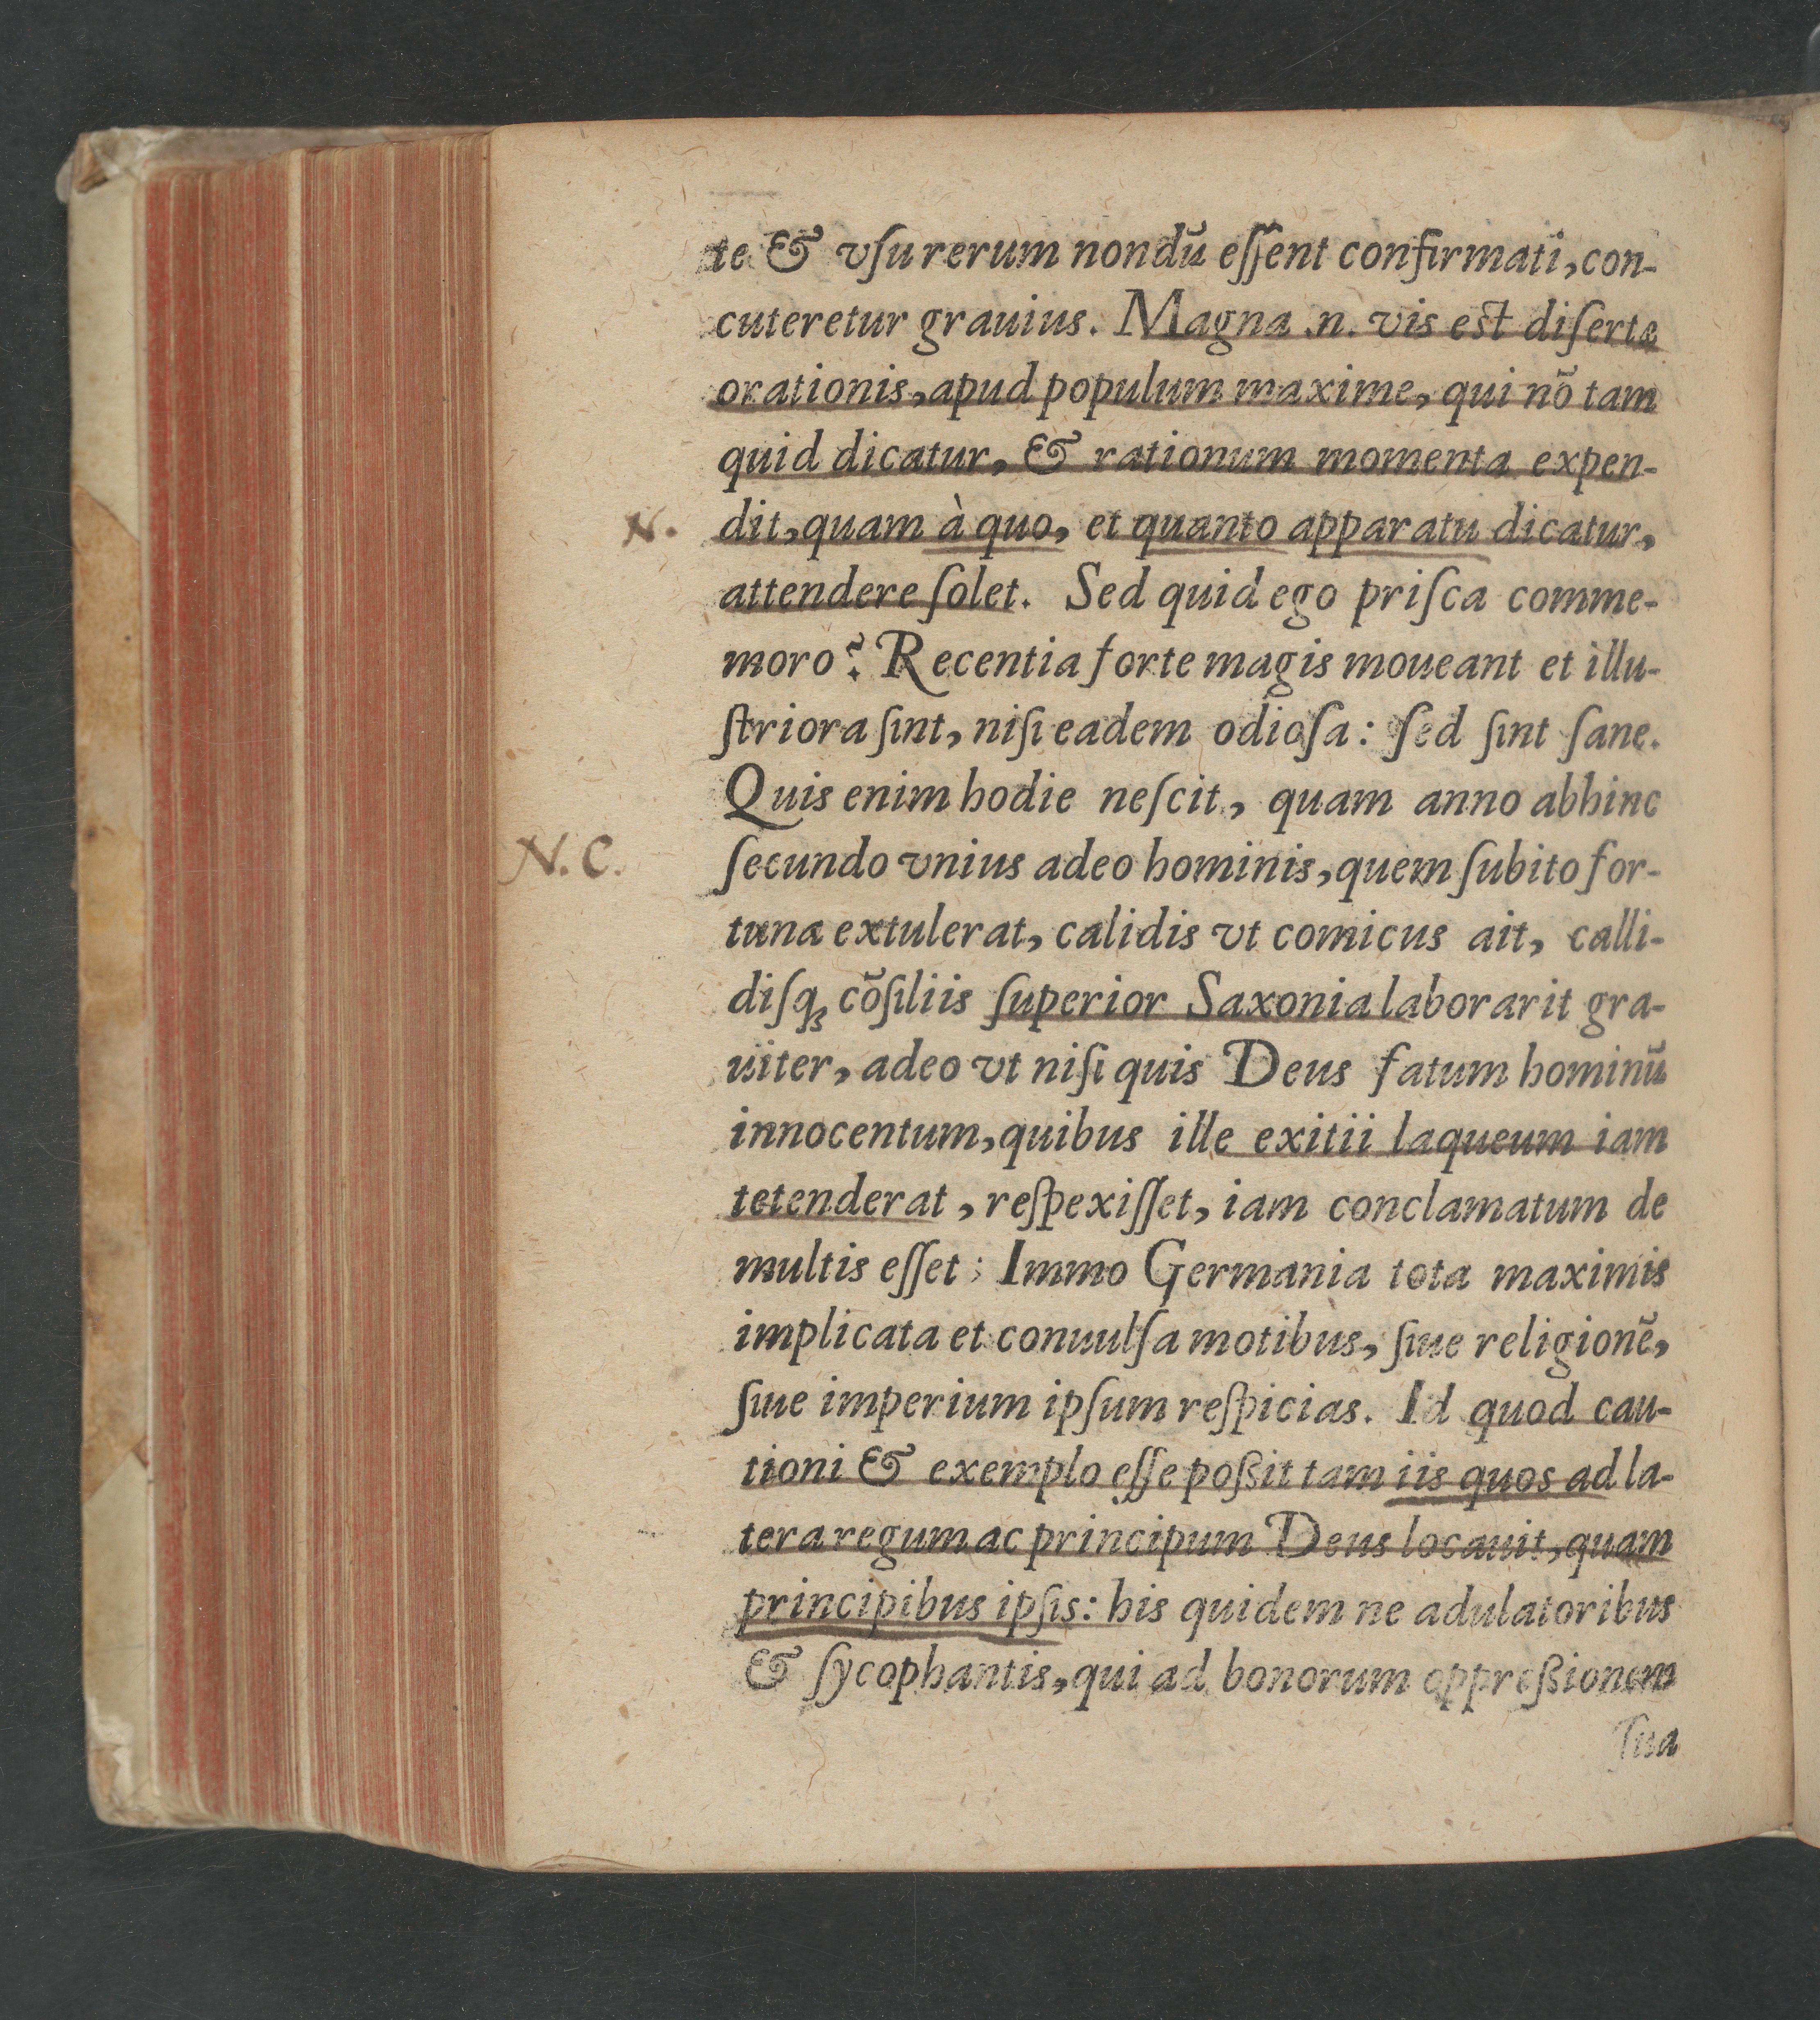 te & vſu rerum nondū eſſent confirmati, con-
cuteretur grauius. Magna .n. vis est diſertæ
orationis, apud populum maxime, qui nō tam
quid dicatur, & rationum momenta expen-
N. dit, quam à quo, et quanto apparatu dicatur,
attendere ſolet. Sed quid ego priſca comme-
moro? Recentia forte magis moueant et illu-
ſtriora ſint, niſi eadem odioſa: ſed ſint ſane.
Quis enim hodie neſcit, quam anno abhinc
N. C. ſecundo vnius adeo hominis, quem ſubito for-
tuna extulerat, calidis vt comicus ait, calli-
diſq́ꝫ cōſiliis ſuperior Saxonia laborarit gra-
uiter, adeo vt niſi quis Deus fatum hominū
innocentum, quibus ille exitii laqueum iam
tetenderat, reſpexiſſet, iam conclamatum de
multis eſſet: Immo Germania tota maximis
implicata et conuulſa motibus, ſiue religionē,
ſiue imperium ipſum reſpicias. Id quod cau-
tioni & exemplo eſſe poßit tam iis quos ad la-
tera regum ac principum Deus locauit, quam
principibus ipſis: his quidem ne adulatoribus
& ſycophantis, qui ad bonorum oppreßionem
ſua